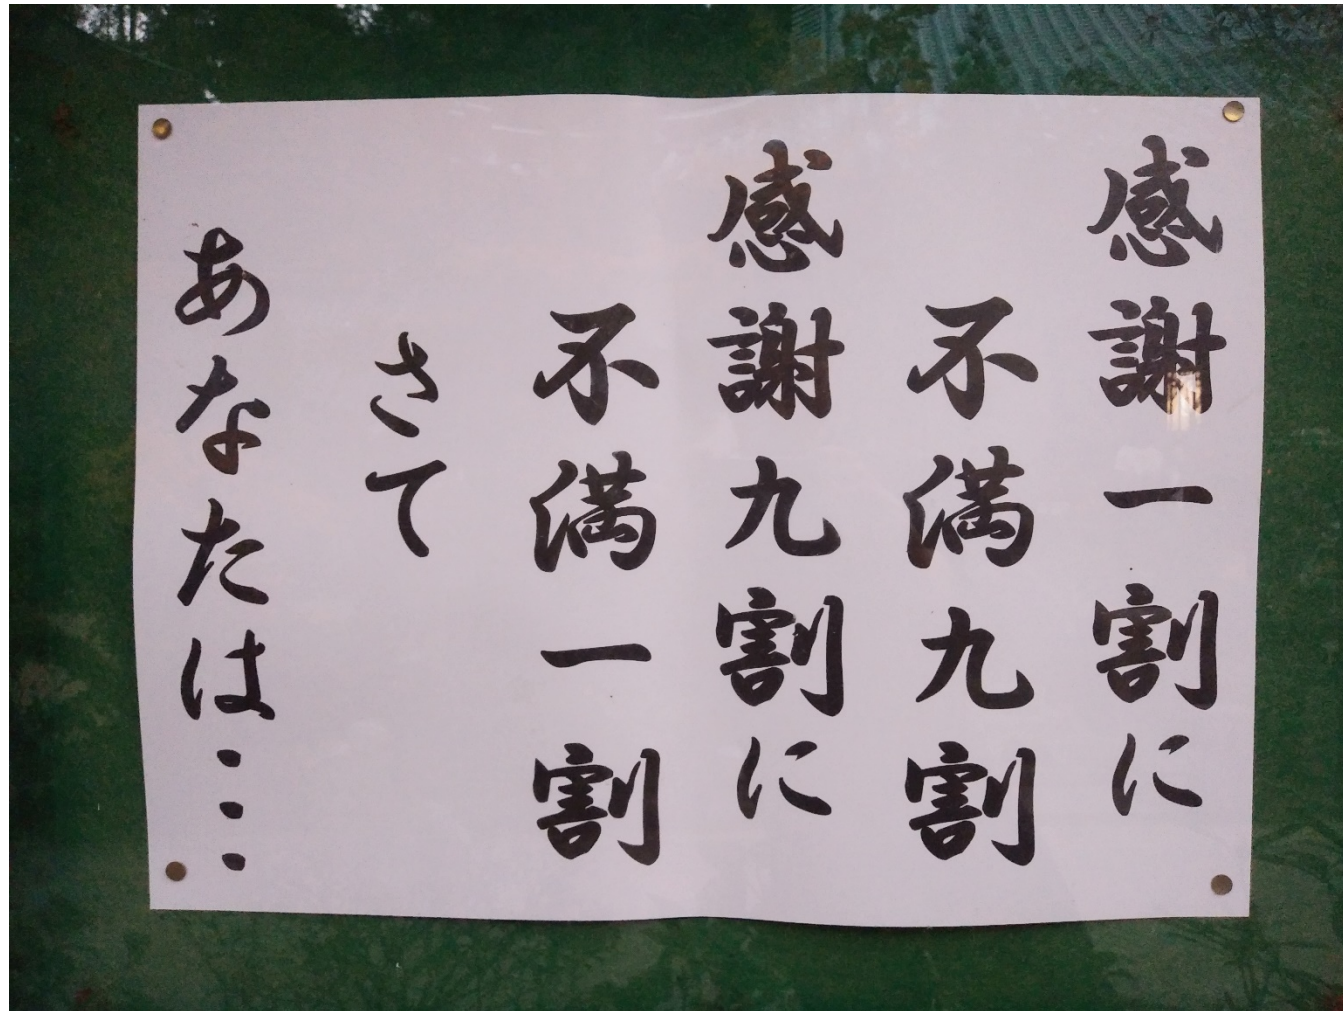 感謝一割に
不満九割
感謝九割に
不満一割
さて
あなたは…